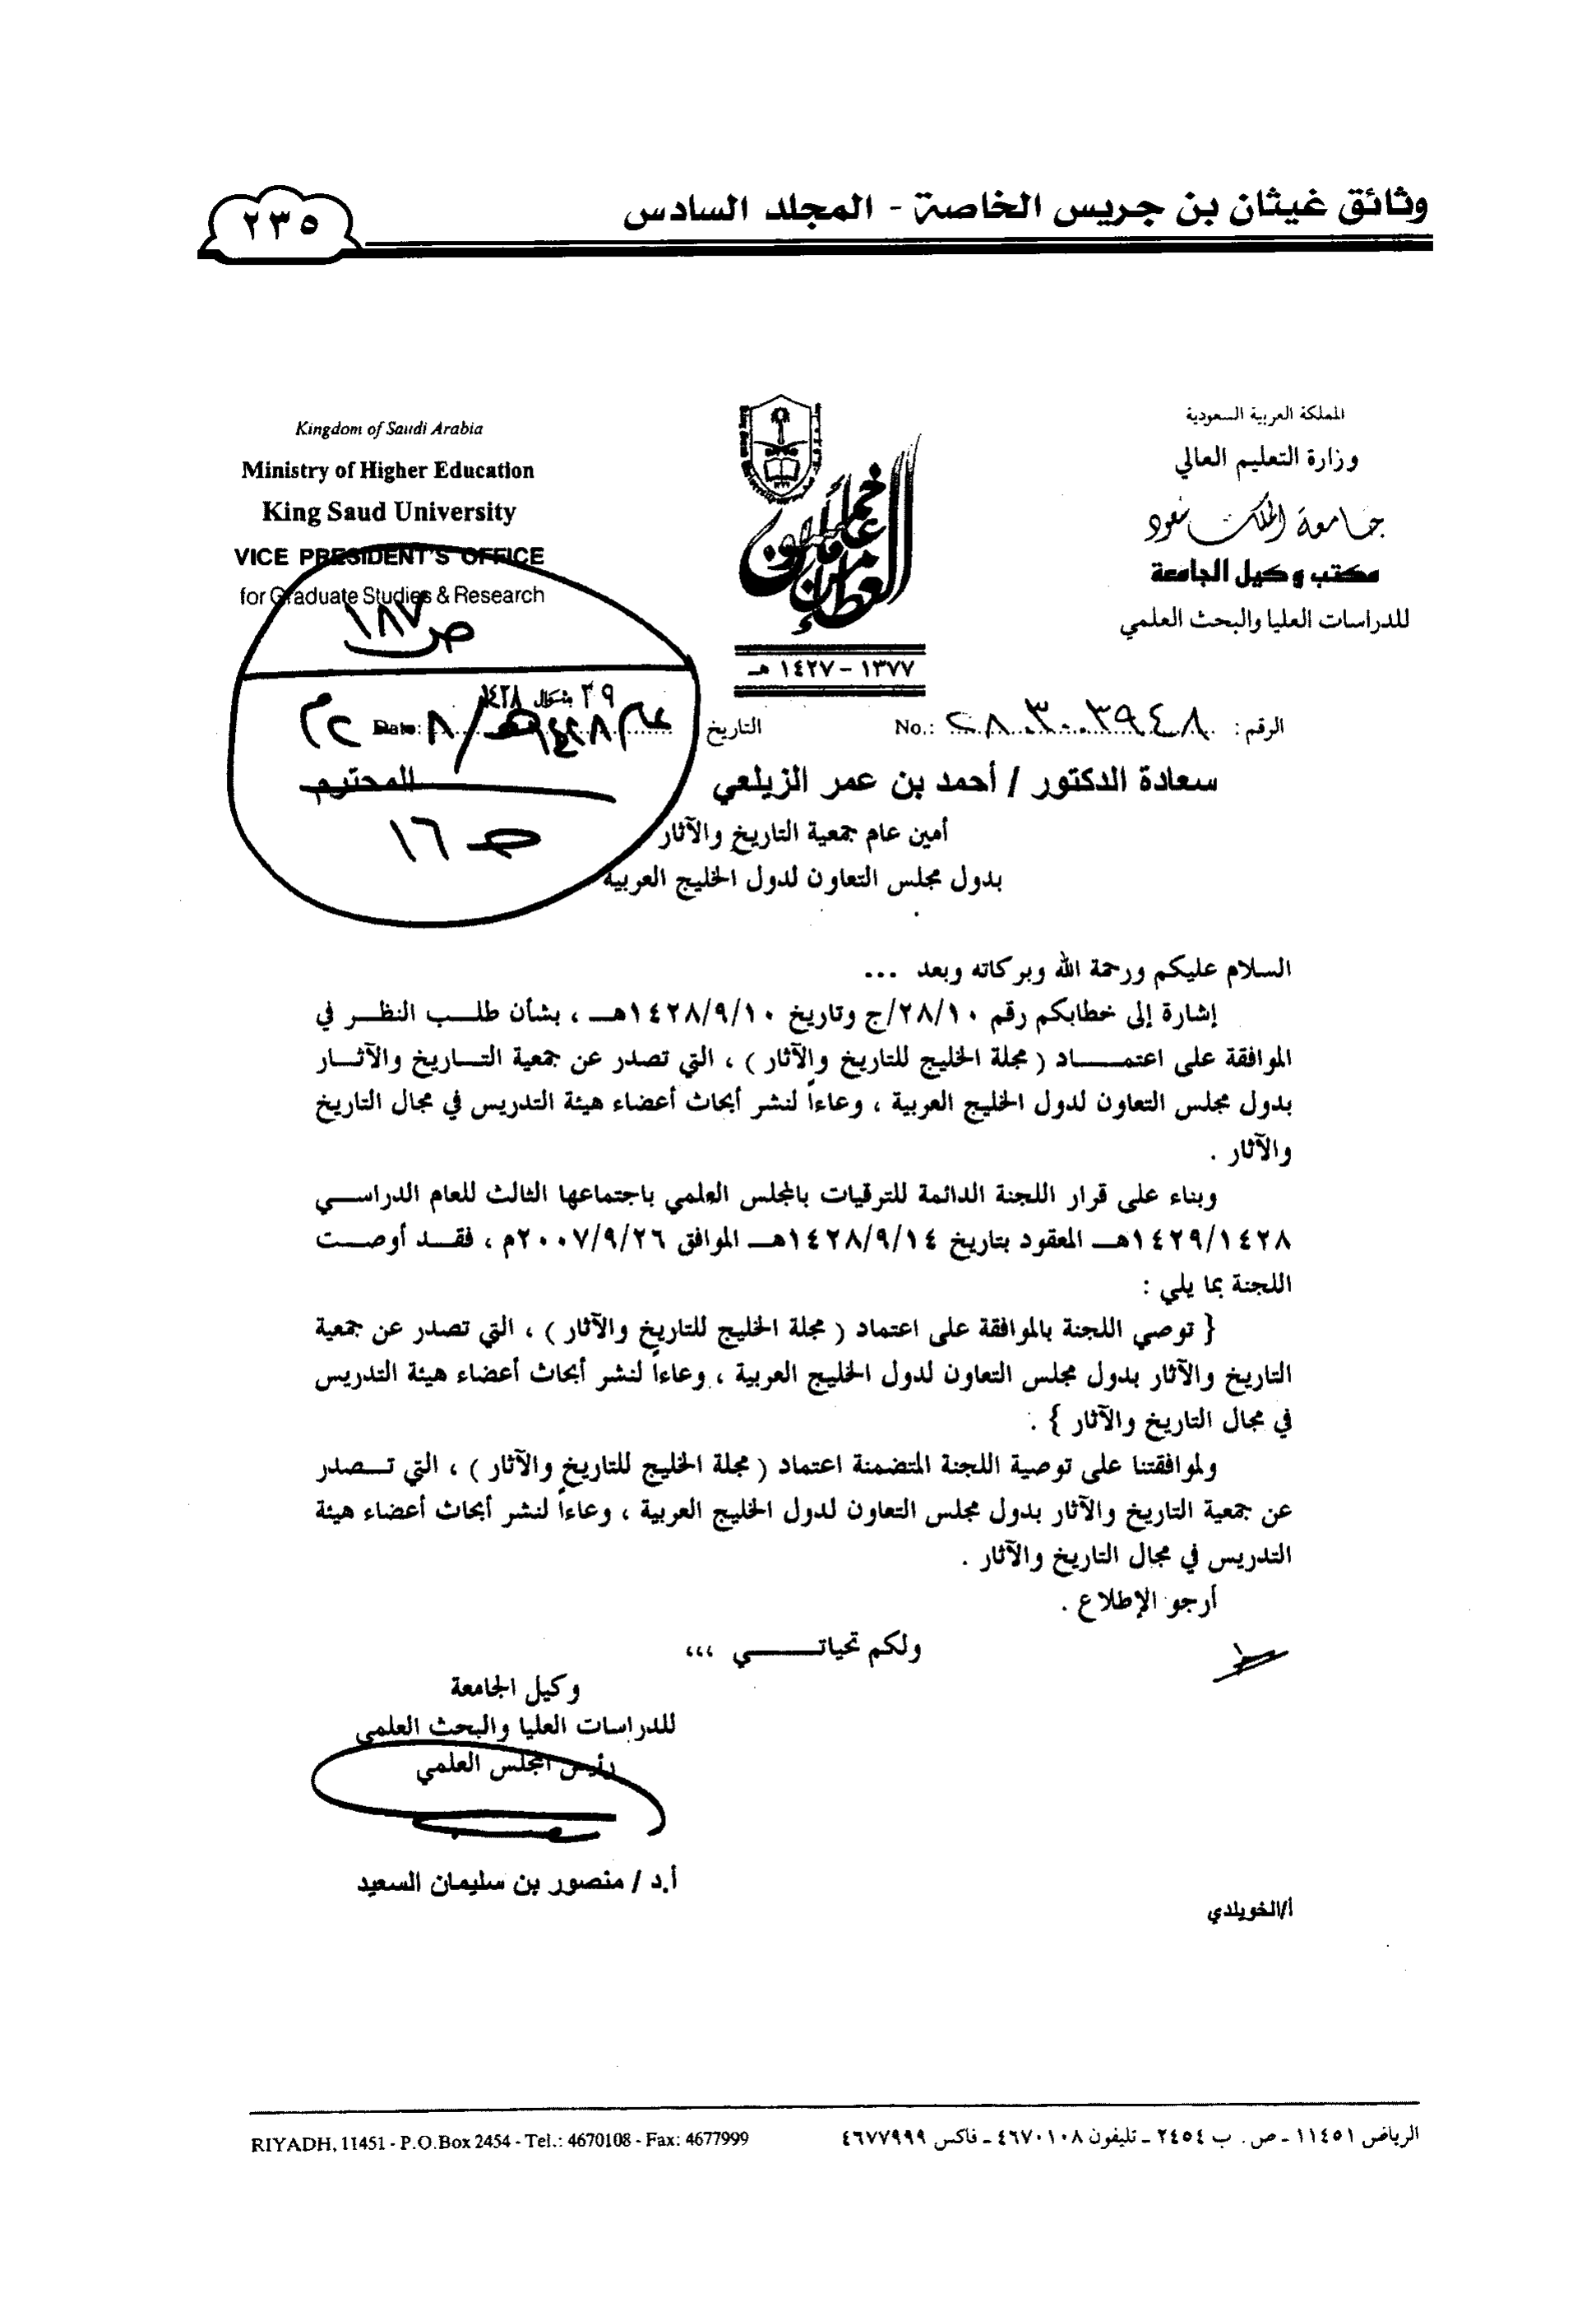 وثائق غيثان بن جريس الخاصة - المجلد السادس
٢٣٥
المملكة العربية السعودية
وزارة التعليم العالي
جامعة الملك سعود
مكتب وكيل الجامعة
للدراسات العليا والبحث العلمي
١٣٧٧ - ١٤٢٧ هـ
Kingdom of Saudi Arabia
Ministry of Higher Education
King Saud University
VICE PRESIDENT'S OFFICE
for Graduate Studies & Research
ص ١٨٧
٢٩ شوال ١٤٢٨
الرقم : No.:
التاريخ Date:
سعادة الدكتور / أحمد بن عمر الزيلعي المحترم
أمين عام جمعية التاريخ والآثار
بدول مجلس التعاون لدول الخليج العربية
السلام عليكم ورحمة الله وبركاته وبعد ...
إشارة إلى خطابكم رقم ٢٨/١٠/ج وتاريخ ١٤٢٨/٩/١٠هـ ، بشأن طلب النظر في
الموافقة على اعتماد ( مجلة الخليج للتاريخ والآثار ) ، التي تصدر عن جمعية التاريخ والآثار
بدول مجلس التعاون لدول الخليج العربية ، وعاءاً لنشر أبحاث أعضاء هيئة التدريس في مجال التاريخ
والآثار .
وبناء على قرار اللجنة الدائمة للترقيات بالمجلس العلمي باجتماعها الثالث للعام الدراسي
١٤٢٩/١٤٢٨هـ المعقود بتاريخ ١٤٢٨/٩/١٤هـ الموافق ٢٠٠٧/٩/٢٦م ، فقد أوصت
اللجنة بما يلي :
{ توصي اللجنة بالموافقة على اعتماد ( مجلة الخليج للتاريخ والآثار ) ، التي تصدر عن جمعية
التاريخ والآثار بدول مجلس التعاون لدول الخليج العربية ، وعاءاً لنشر أبحاث أعضاء هيئة التدريس
في مجال التاريخ والآثار } .
ولموافقتنا على توصية اللجنة المتضمنة اعتماد ( مجلة الخليج للتاريخ والآثار ) ، التي تصدر
عن جمعية التاريخ والآثار بدول مجلس التعاون لدول الخليج العربية ، وعاءاً لنشر أبحاث أعضاء هيئة
التدريس في مجال التاريخ والآثار .
أرجو الإطلاع .
ولكم تحياتي ،،،
وكيل الجامعة
للدراسات العليا والبحث العلمي
رئيس المجلس العلمي
أ.د / منصور بن سليمان السعيد
أ/الخويلدي
الرياض ١١٤٥١ - ص . ب ٢٤٥٤ - تليفون ٤٦٧٠١٠٨ - فاكس ٤٦٧٧٩٩٩
RIYADH, 11451 - P.O.Box 2454 - Tel.: 4670108 - Fax: 4677999